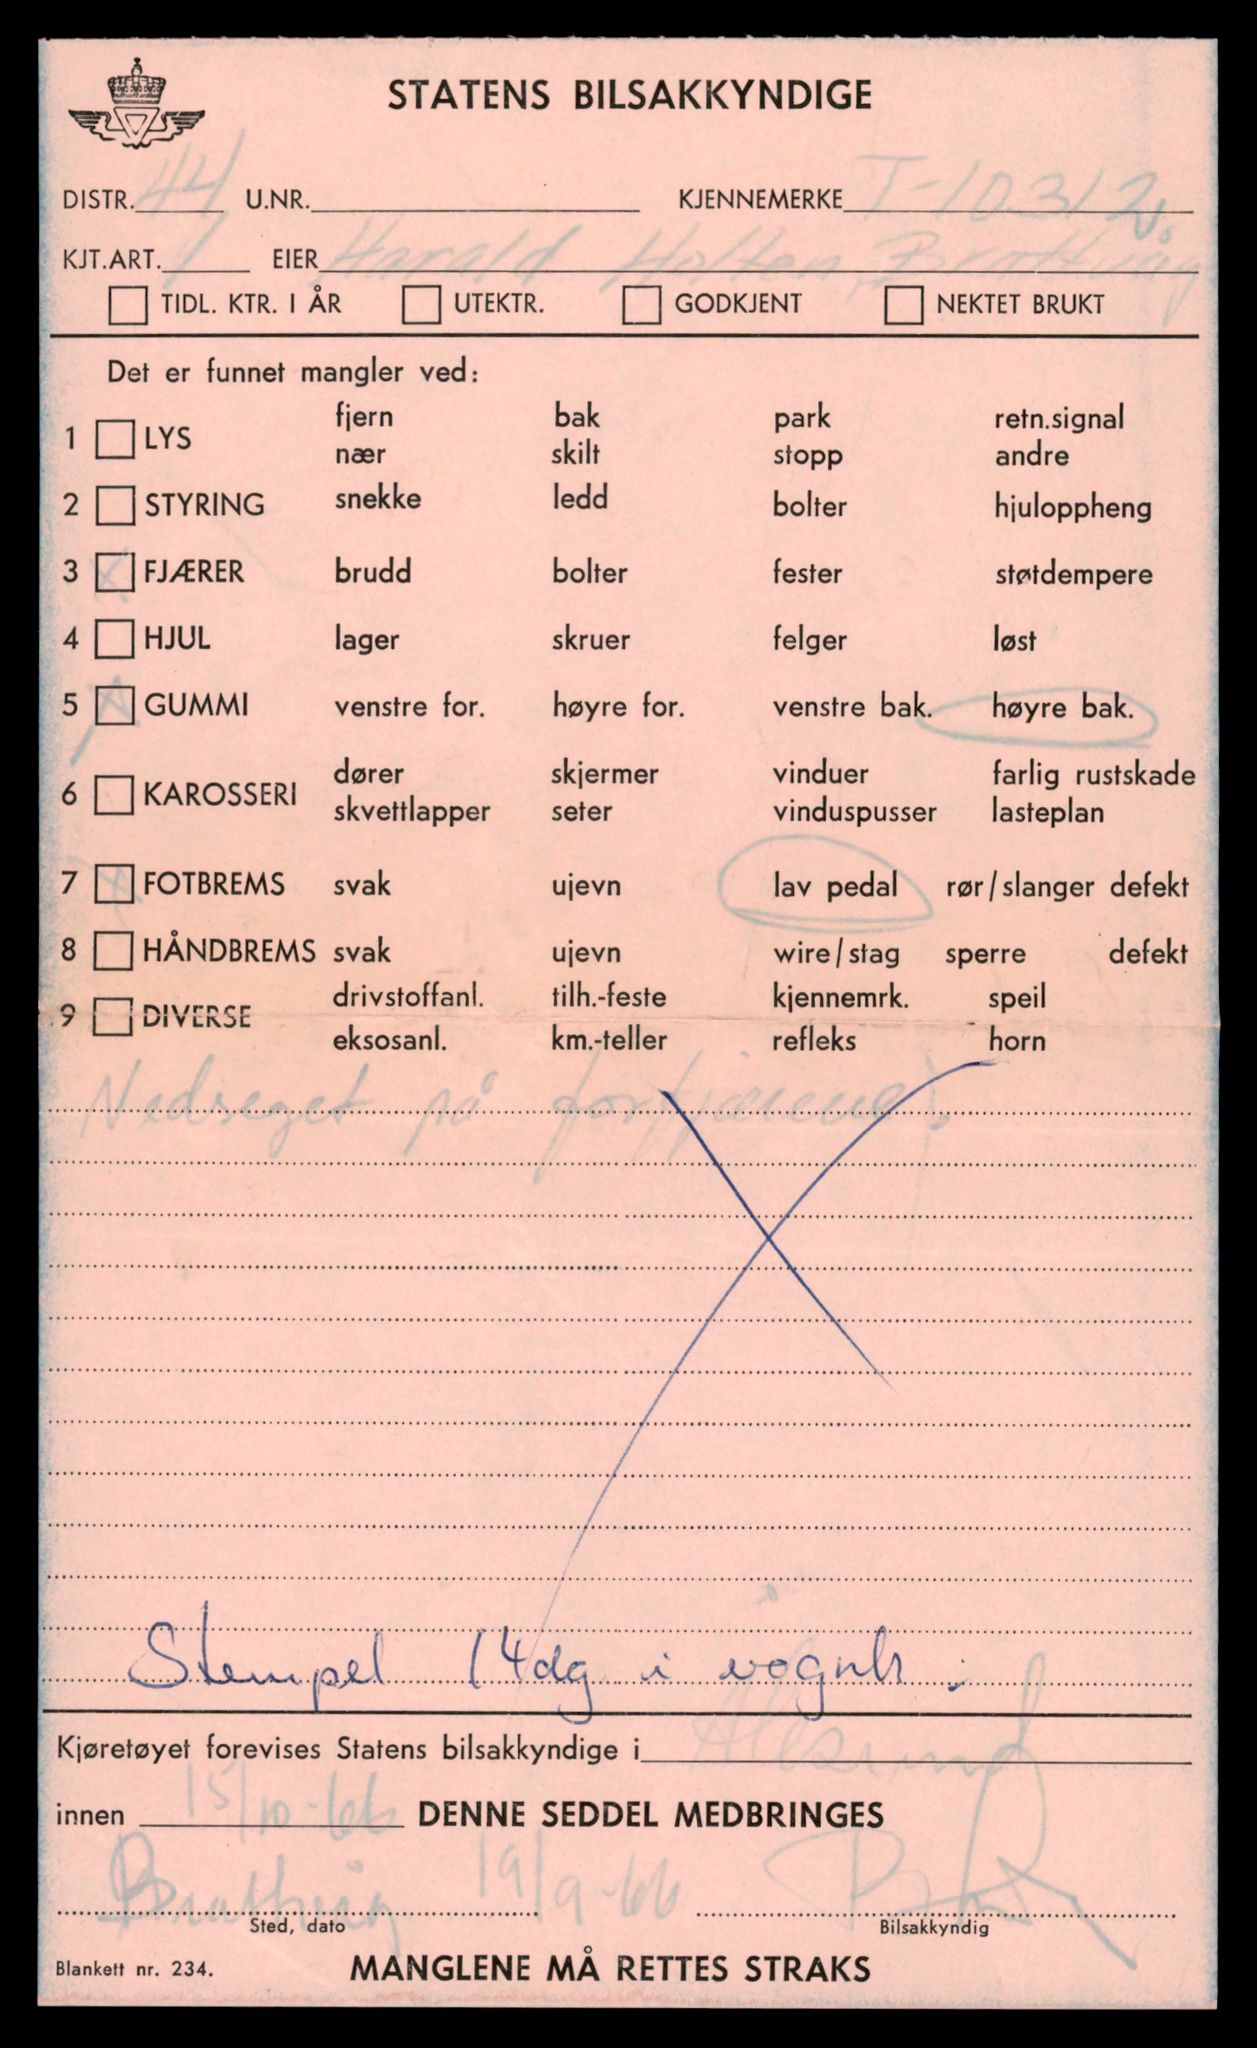 STATENS BILSAKKYNDIGE
DISTR. 44 U.NR. KJENNEMERKE T-10312
KJT.ART. 1 EIER Harald Holten, Brattvåg
TIDL. KTR. I ÅR UTEKTR. GODKJENT NEKTET BRUKT
Det er funnet mangler ved:
1 LYS fjern bak park retn.signal
nær skilt stopp andre
2 STYRING snekke ledd bolter hjuloppheng
3 FJÆRER brudd bolter fester støtdempere
4 HJUL lager skruer felger løst
5 GUMMI venstre for. høyre for. venstre bak. høyre bak.
6 KAROSSERI dører skjermer vinduer farlig rustskade
skvettlapper seter vinduspusser lasteplan
7 FOTBREMS svak ujevn lav pedal rør/slanger defekt
8 HÅNDBREMS svak ujevn wire/stag sperre defekt
9 DIVERSE drivstoffanl. tilh.-feste kjennemrk. speil
eksosanl. km.-teller refleks horn
Nedseget på forfjærene!
Stempel 14dg i vognk.
Kjøretøyet forevises Statens bilsakkyndige i Ålesund
innen 15/10-66 DENNE SEDDEL MEDBRINGES
Brattvåg 19/9-66
Sted, dato Bilsakkyndig
Blankett nr. 234. MANGLENE MÅ RETTES STRAKS